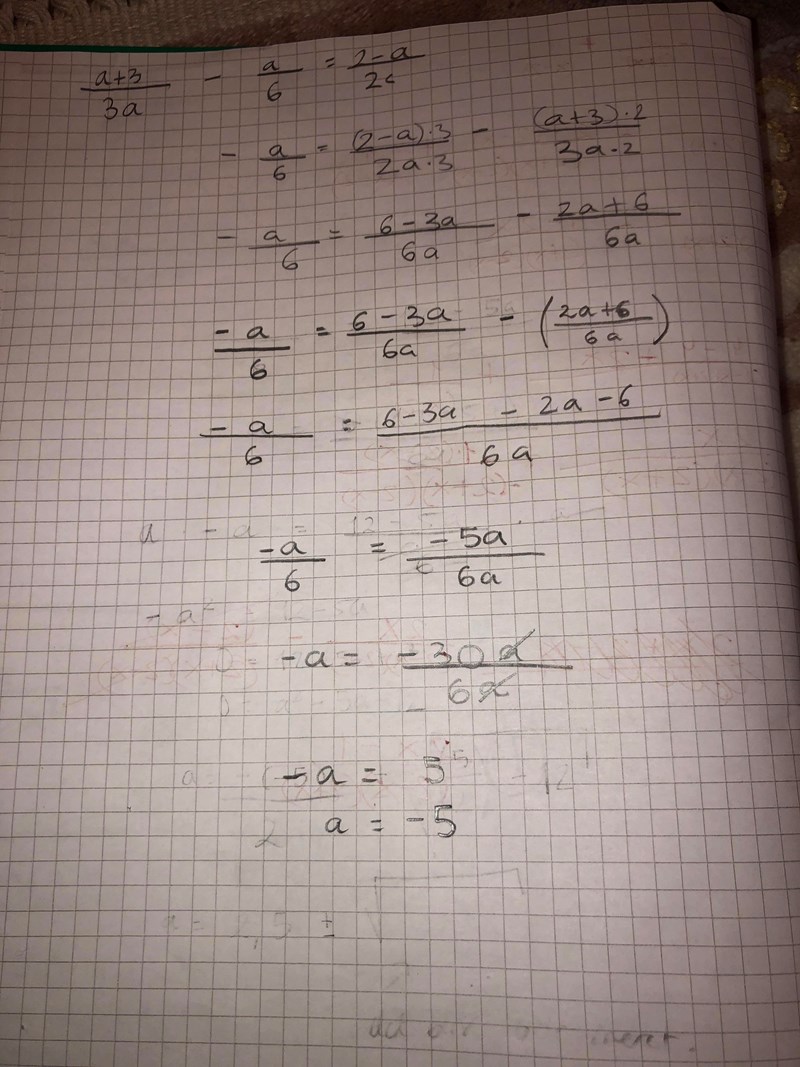 (a+3)/(3a) - a/6 = (2-a)/2
- a/6 = ((2-a)·3)/(2a·3) - ((a+3)·2)/(3a·2)
- a/6 = (6-3a)/(6a) - (2a+6)/(6a)
(-a)/6 = (6-3a)/(6a) - ((2a+6)/(6a))
(-a)/6 = (6-3a - 2a-6)/(6a)
(-a)/6 = (-5a)/(6a)
-a = (-30a)/(6a)
-a = 5
a = -5